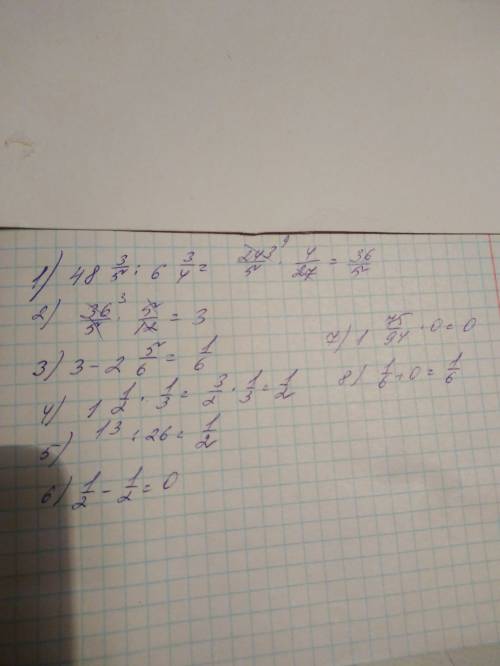 1) 48 3/5 : 6 3/4 = 243/5 9 · 4/27 = 36/5
2) 36/5 3 · 5/12 = 3
3) 3 - 2 5/6 = 1/6
4) 1 1/2 · 1/3 = 3/2 · 1/3 = 1/2
5) 13 : 26 = 1/2
6) 1/2 - 1/2 = 0
7) 1 75/94 · 0 = 0
8) 1/6 + 0 = 1/6